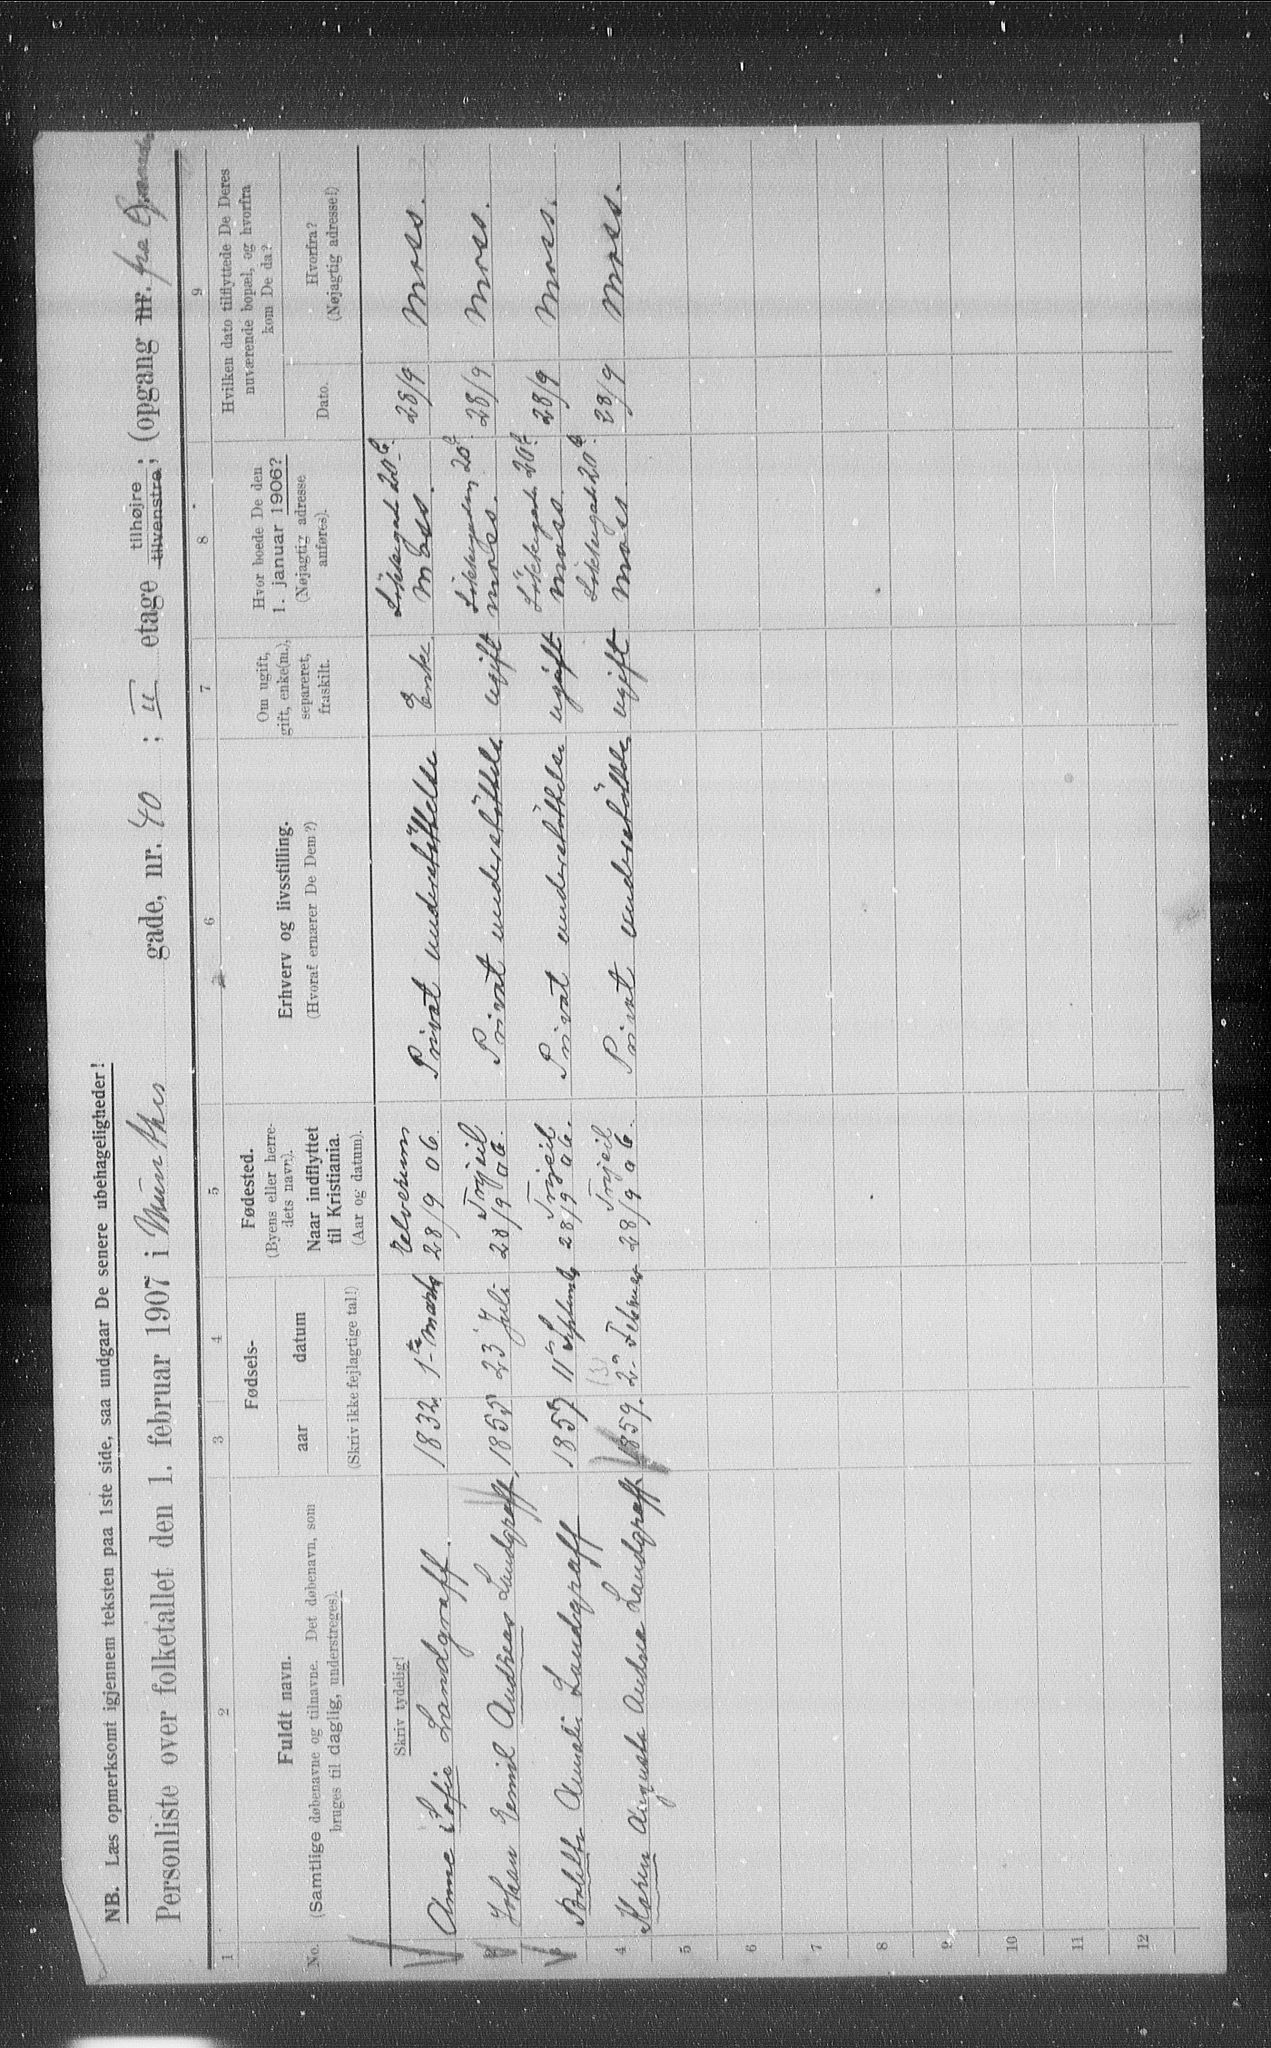 NB. Læs opmerksomt igjennem teksten paa 1ste side, saa undgaar De senere ubehageligheder!
Personliste over folketallet den 1. februar 1907 i Munthes gade, nr. 40 ; II etage tilhøjre tilvenstre; (opgang nr. fra
1 2 3 4 5 6 7 8 9
No.
Fuldt navn.
(Samtlige døbenavne og tilnavne. Det døbenavn, som
bruges til daglig, understreges).
Fødsels-
aar datum
(Skriv ikke fejlagtige tal!)
Fødested.
(Byens eller herre-
dets navn).
Naar indflyttet
til Kristiania.
(Aar og datum).
Erhverv og livsstilling.
(Hvoraf ernærer De Dem?)
Om ugift,
gift, enke(m.),
separeret,
fraskilt.
Hvor boede De den
1. januar 1906?
(Nøjagtig adresse
anføres).
Hvilken dato tilflyttede De Deres
nuværende bopæl, og hvorfra
kom De da?
Dato.
Hvorfra?
(Nøjagtig adresse!)
Skriv tydelig!
1 Anne Sofie Landgraff. 1832 1ste marts Elverum 28/9 06. Privat understøttelse Enke 20b. Moss. 28/9 Moss.
2 Johan Emil Andreas Landgraff, 1855 23 Juli Trysil 28/9 06. Privat understøttelse ugift 20b. Moss. 28/9 Moss.
3 Amalie Landgraff 1857 11te September Trysil 28/9 06. Privat understøttelse ugift 20b. Moss. 28/9 Moss.
4 Karen Augusta Andrea Landgraff 1859. 2 Februar Trysil 28/9 06. Privat understøttelse ugift 20b. Moss. 28/9 Moss.
5
6
7
8
9
10
11
12